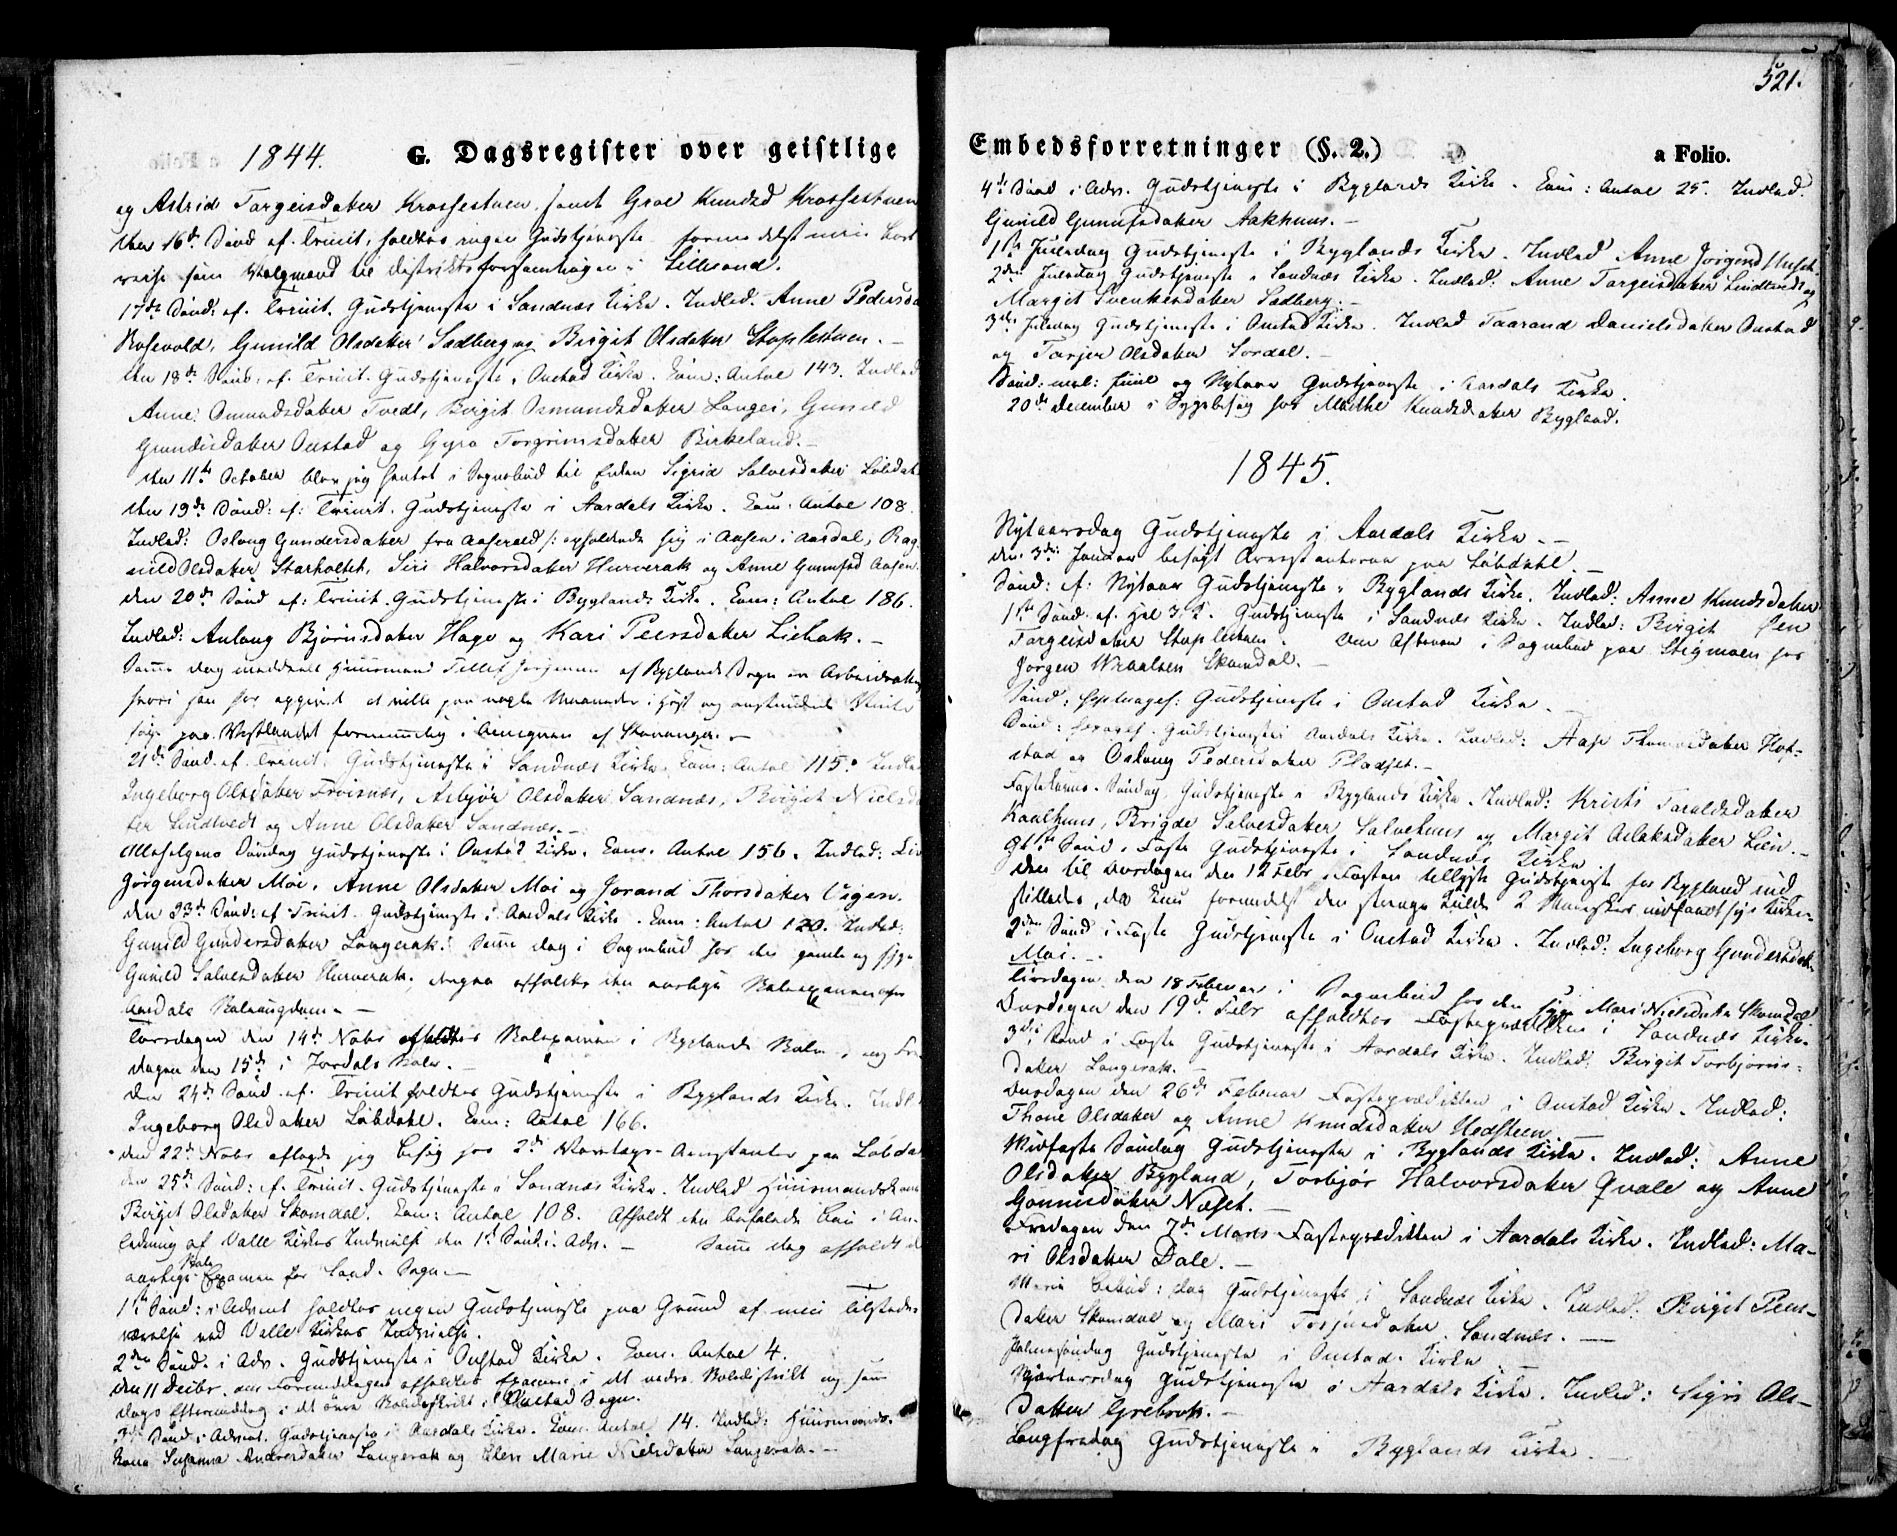 1844.
G. Dagsregister over geistlige
og Astrid Targeisdatter Krossestuen samt Groe Knudsd Krossestuen
Den 16de Sønd ef. Trinit. holdtes ingen Gudstjeneste formedelst min Bort
reise som Valgmand til Distriktsforsamlingen i Lillesand.
17de Sønd: ef. Trinit. Gudstjeneste i Sandnæs Kirke. Indled. Anne Pedersda
Rosevold, Gunild Olsdatter Sadberg og Birgit Olsdatter Stoplestuen. –
den 18de Sønd: ef. Trinit. Gudstjeneste i Oustad Kirke. Com: Antal 143. Indled
Anne Omundsdatter Tvedt, Birgit Osmundsdatter Langei, Gunild
Gundersdatter Oustad og Gyro Torgrimsdatter Birkeland. –
den 11te October blev jeg hentet i Sognebud til Enken Sigrid Salvesdatter Løbdal
den 19de Sønd: ef: Trinit. Gudstjeneste i Aardals Kirke. Com. Antal 108.
Indled: Oslaug Gundersdatter fra Aaserald /: opholdende sig i Aasen i Aardal, Rag-
nild Olsdatter Storholtet, Siri Halvorsdatter Hurverak og Anne Gunnufsd Aasen.
den 20de Sønd ef: Trinit. Gudstjeneste i Byglands Kirke. Com: Antal 186.
Indled: Anlaug Bjørnsdatter Hage og Kari Peersdatter Liebak. –
Samme dag meddeelt Huusmand Tellef Jørgensen af Byglands Sogn en Arbeidsattest
hvori han har opgivet at ville paa nogle Maaneder i Høst og anstundende Vinter
søge paa Vestlandet fornemmelig i Omegnen af Stavanger. –
21de Sønd. ef. Trinit. Gudstjeneste i Sandnæs Kirke. Com: Antal 115. Indled
Ingeborg Olsdatter Frøisnæs, Asbjør Olsdatter Sandnæs, Birgit Nielsda
ter Lindtvedt og Anne Olsdatter Sandnæs. –
Allehelgens Søndag Gudstjeneste i Oustad Kirke. Com. Antal 156. Indled: Liv
Jørgensdatter Moi, Anne Olsdatter Moi og Jorand Thorsdatter Uigen.
den 23de Sønd: ef Trinit. Gudstjeneste i Aardals Kirke. Com: Antal 120. Indled:
Gunild Gundersdatter Langerak. Samme dag i Sognebud hos den gamle og syge
Gunild Salvesdatter Hurverak, dagen afholdtes den aarlige Skoleexamen over
Aardals Skoleungdom. –
Torsdagen den 14de Novbr afholdtes Skoleexamen i Byglands Skole, og Fre
dagen den 15de i Jordals Skole. –
den 24de Sønd. ef. Trinit holdtes Gudstjeneste i Byglands Kirke. Indl
Ingeborg Olsdatter Løbdahl. Com: Antal 166.
den 22de Novbr aflagde jeg Besøg hos 2de Varetægts-Arrestanter paa Løbdal
den 25de Sønd: ef. Trinit. Gudstjeneste i Sandnæs Kirke. Indled Huusmandskone
Birgit Olsdatter Skomdal. Com: Antal 108. Afholdt den befalede Bøn i An-
ledning af Valle Kirkes Indvielse den 1ste Sønd. i Adv. – Samme dag afholdt d
aarlige Skole Examen for Sand. Sogn. –
1ste Sønd: i Advent holdtes ingen Gudstjeneste paa Grund af min Tilstede-
værelse ved Valle Kirkes Indvielse.
2den Sønd. i Adv. Gudstjeneste i Oustad Kirke. Com. Antal 4.
den 11 Decbr. om Formiddagen afholdtes Examen i det nedre Skoledistrikt og samme
dags Eftermiddag i det øvre Skoledistrikt i Oustad Sogn.
3de Sønd i Advent. Gudstjeneste i Aardals Kirke. Com. Antal 14. Indled: Huusmands-
kone Susanna Andersdatter Langerak og Elen Marie Nielsdatter Langerak. –
521.
Embedsforretninger (§. 2.)
a Folio.
4de Sønd i Adv. Gudstjeneste i Byglands Kirke. Com: Antal 25. Indled.
Gunild Gunnufsdatter Aakhuus. –
1ste Juledag Gudstjeneste i Byglands Kirke. Indled Anne Jørgensd
2den Juledag Gudstjeneste i Sandnæs Kirke. Indled: Anne Targeisdatter Lindtvedt og
Margit Svenkesdatter Sadberg. –
3die Juledag Gudstjeneste i Oustad Kirke. Indled Taarand Danielsdatter Oustad
og Tarjer Olsdatter Sordal. –
Sønd: mel: Juul og Nytaar Gudstjeneste i Aardals Kirke.
20de December i Sygebesøg hos Mathe Knudsdatter Bygland.
1845.
Nytaarsdag Gudstjeneste i Aardals Kirke. –
den 3die Januar besøgt Arrestanterne paa Løbdahl. –
Sønd: ef: Nytaar Gudstjeneste i Byglands Kirke. Indled: Anne Knudsdatter
1ste Sønd. ef. Hel 3 K. Gudstjeneste i Sandnæs Kirke. Indled: Birgit
Targeisdatter Stoplestuen. Om Aftenen i Sognebud paa Stigmoen hos
Jørgen Wraalsen Skomdal. –
Sønd: Septuages: Gudstjeneste i Oustad Kirke. –
Sønd: Sexages. Gudstjeneste i Aardals Kirke. Indled: Aase Thomasdatter Hof-
stad og Oslaug Pedersdatter Pladset. –
Fastelavns-Søndag, Gudstjeneste i Byglands Kirke. Indled: Kristi Taraldsdatter
Kaalhuus, Brigde Salvesdatter Salvehuus og Margit Aslaksdatter Lien. –
1ste Sønd i Faste Gudstjeneste i Sandnæs Kirke.
Den til Onsdagen den 12 Febr i Fasten tillyste Gudstjeneste for Bygland ind-
stilledes, da kun formedelst den strenge Kulde 2 Mennesker indfandt sig i Kirken.
2den Sønd i Faste Gudstjeneste i Oustad Kirke. Indled: Ingeborg Gundersdatter
Moi. –
Tirsdagen den 18 Februar i Sognebud hos den syge Mari Nielsdatter Skomdal
Onsdagen den 19de Febr afholdtes Fasteprædiken i Sandnæs Kirke.
3die Sønd i Faste Gudstjeneste i Aardals Kirke. Indled: Birgit Torbjørns-
datter Langerak. –
Onsdagen den 26de Februar Fasteprædiken i Oustad Kirke. Indled:
Thone Olsdatter og Anne Knudsdatter Hedsteen.
Midfaste Søndag Gudstjeneste i Byglands Kirke. Indled: Anne
Olsdatter Bygland, Torbjør Halvorsdatter Qvale og Anne
Gonnersdatter Næset. –
Fredagen den 7de Marts Fasteprædiken i Aardals Kirke. Indled: Ma-
ri Olsdatter Dale. –
Mariæ Bebud: dag Gudstjeneste i Sandnæs Kirke. Indled. Birgit Peers-
datter Skomdal og Mari Torjusdatter Sandnæs. –
Palmesøndag Gudstjeneste i Oustad Kirke
Skjærtorsdag Gudstjeneste i Aardals Kirke. Indled: Sigri Ols-
datter Grebrok. –
Langfredag Gudstjeneste i Byglands Kirke. –